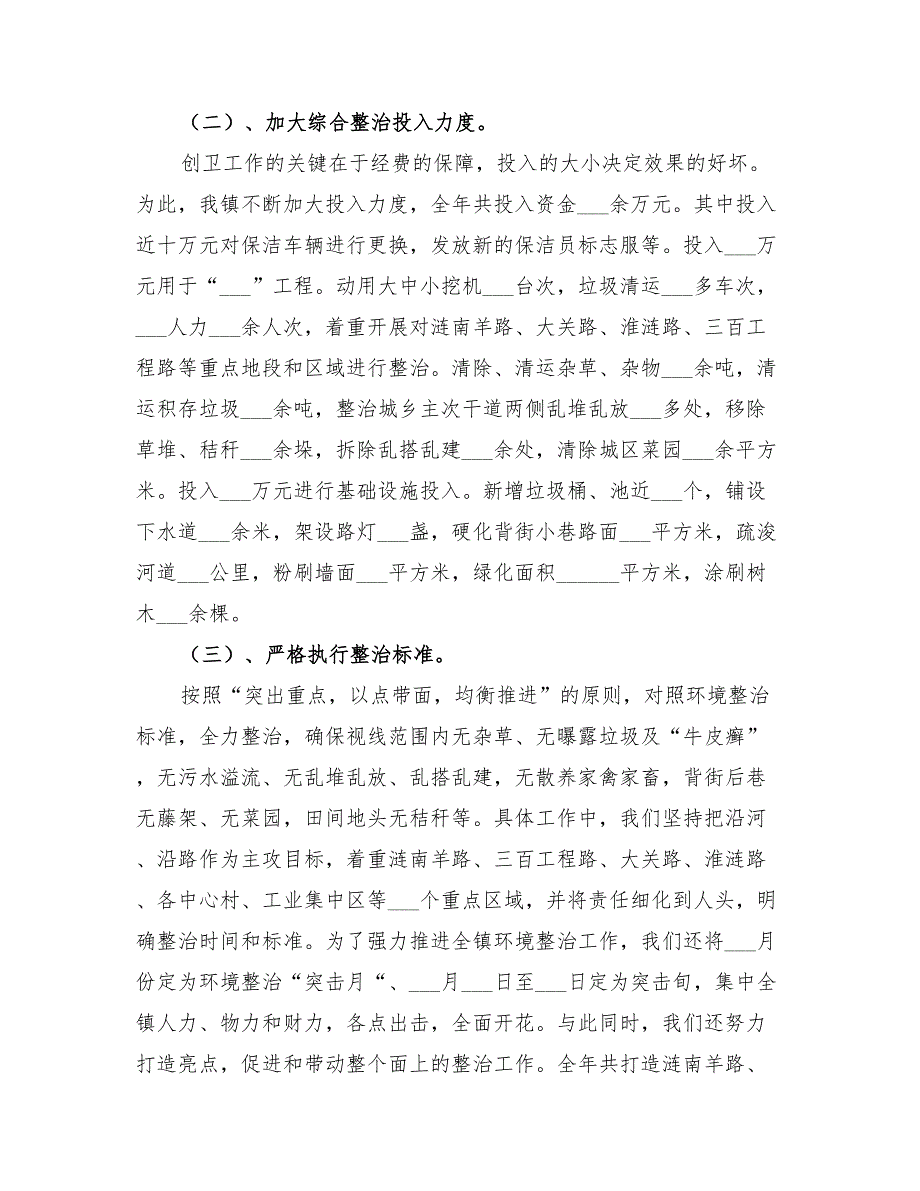 （二）、加大综合整治投入力度。
创卫工作的关键在于经费的保障，投入的大小决定效果的好坏。
为此，我镇不断加大投入力度，全年共投入资金___余万元。其中投入
近十万元对保洁车辆进行更换，发放新的保洁员标志服等。投入___万
元用于“___”工程。动用大中小挖机___台次，垃圾清运___多车次，
___人力___余人次，着重开展对涟南羊路、大关路、淮涟路、三百工
程路等重点地段和区域进行整治。清除、清运杂草、杂物___余吨，清
运积存垃圾___余吨，整治城乡主次干道两侧乱堆乱放___多处，移除
草堆、秸秆___余垛，拆除乱搭乱建___余处，清除城区菜园___余平方
米。投入___万元进行基础设施投入。新增垃圾桶、池近___个，铺设
下水道___余米，架设路灯___盏，硬化背街小巷路面___平方米，疏浚
河道___公里，粉刷墙面___平方米，绿化面积______平方米，涂刷树
木___余棵。
（三）、严格执行整治标准。
按照“突出重点，以点带面，均衡推进”的原则，对照环境整治
标准，全力整治，确保视线范围内无杂草、无曝露垃圾及“牛皮癣”
，无污水溢流、无乱堆乱放、乱搭乱建，无散养家禽家畜，背街后巷
无藤架、无菜园，田间地头无秸秆等。具体工作中，我们坚持把沿河
、沿路作为主攻目标，着重涟南羊路、三百工程路、大关路、淮涟路
、各中心村、工业集中区等___个重点区域，并将责任细化到人头，明
确整治时间和标准。为了强力推进全镇环境整治工作，我们还将___月
份定为环境整治“突击月“、___月___日至___日定为突击旬，集中全
镇人力、物力和财力，各点出击，全面开花。与此同时，我们还努力
打造亮点，促进和带动整个面上的整治工作。全年共打造涟南羊路、